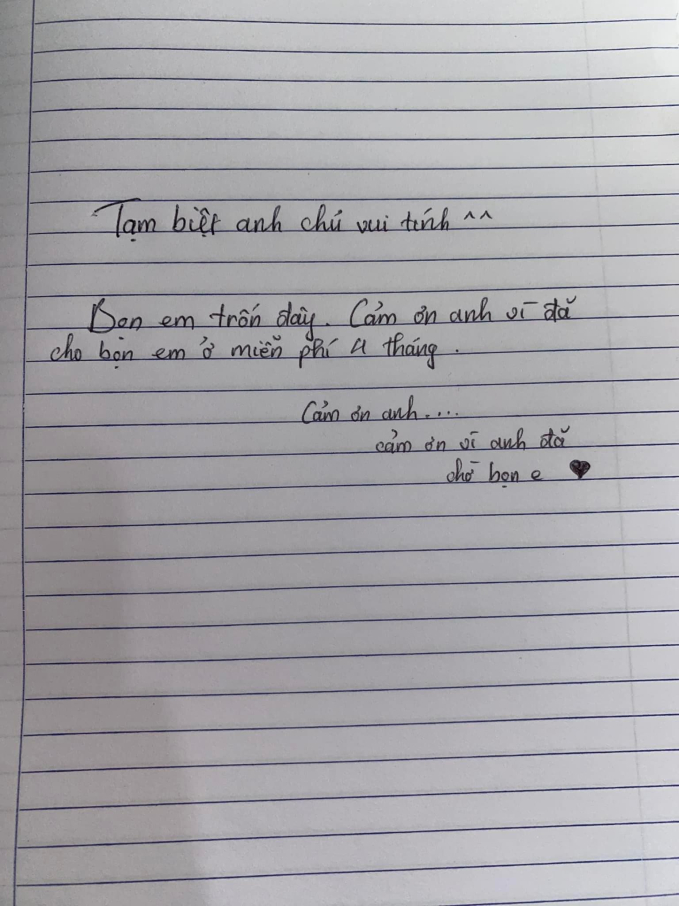 Tạm biệt anh chủ vui tính ^^
Bọn em trốn đây. Cảm ơn anh vì đã
cho bọn em ở miễn phí 4 tháng.
Cảm ơn anh....
cảm ơn vì anh đã
chờ bọn e ♥